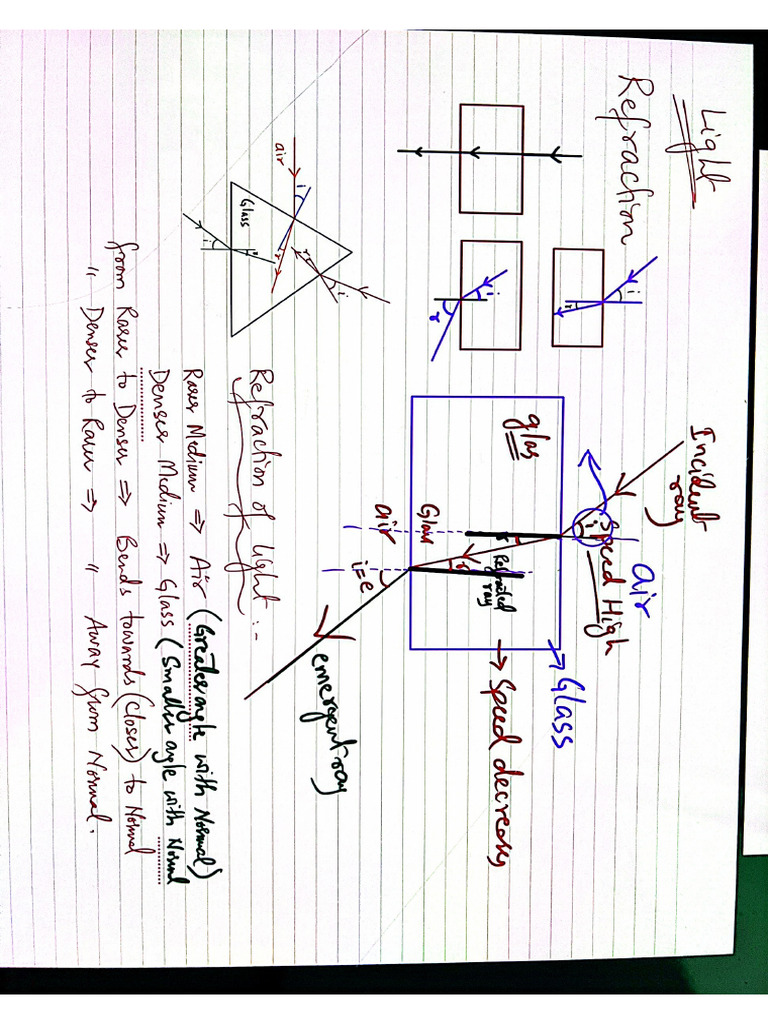 Light
Refraction
Incident
ray
air
i
Speed High
→ Glass
glas
→ Speed decreas
r
Refracted
ray
r
Glass
air
i=e
emergent ray
i
r
i
r
air
i
r
Glass
r
i
i
r
Refraction of light:-
Rarer Medium ⇒ Air (Greater angle with Normal)
Denser Medium ⇒ Glass (Smaller angle with Normal
from Rarer to Denser ⇒ Bends towards (closer) to Normal
" Denser to Rarer ⇒ " Away from Normal.